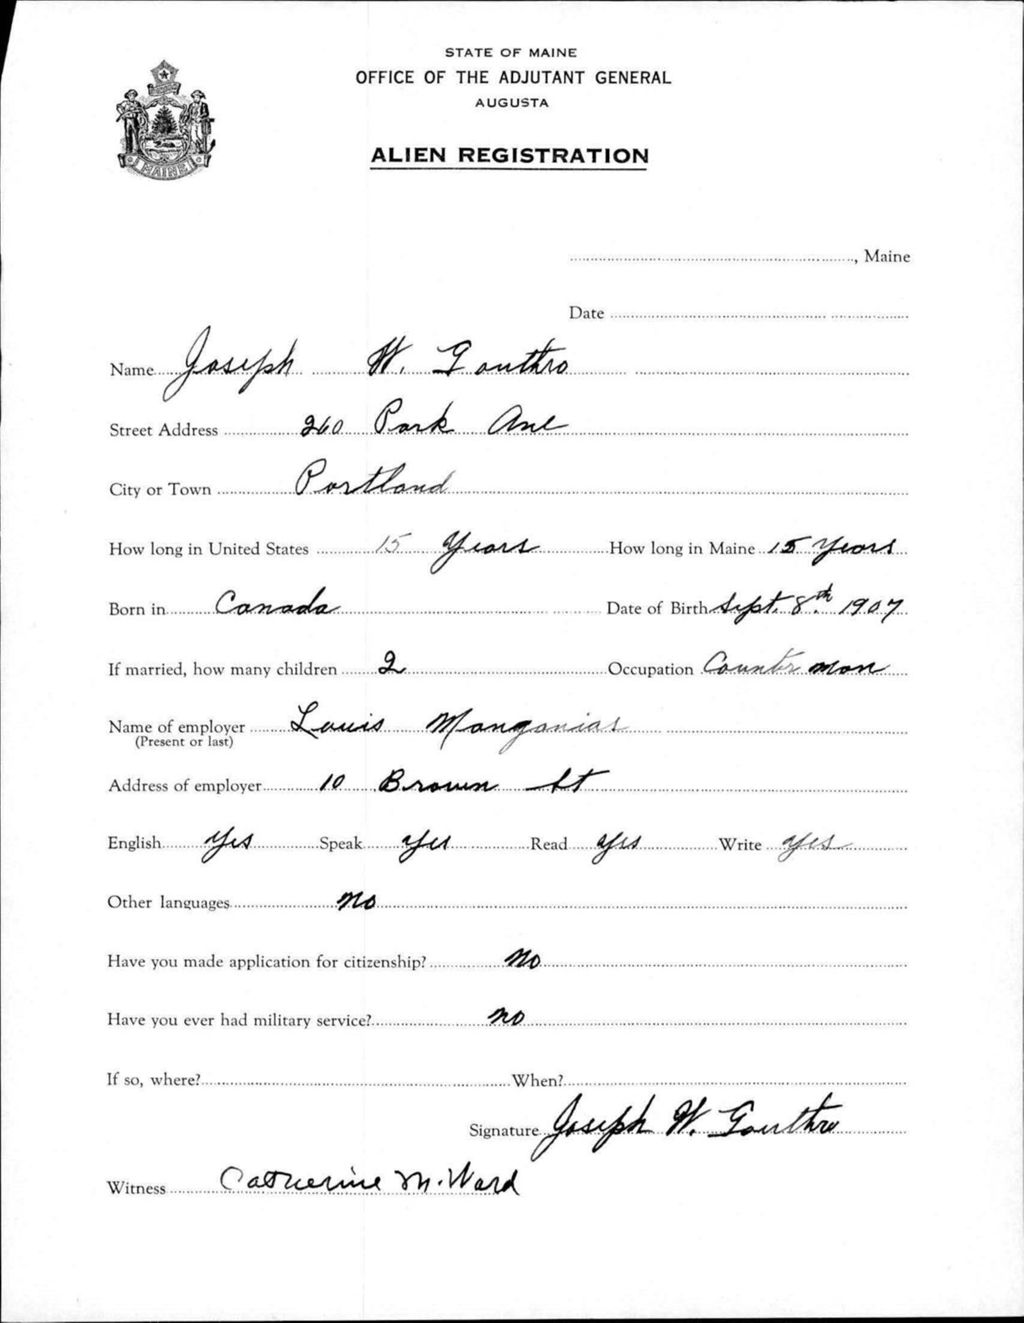 STATE OF MAINE
OFFICE OF THE ADJUTANT GENERAL
AUGUSTA
ALIEN REGISTRATION
MAINE
, Maine
Date
Name Joseph W. Gouthro
Street Address 260 Park Ave
City or Town Portland
How long in United States 15 Years How long in Maine 15 Years
Born in Canada Date of Birth Sept. 8th. 1907
If married, how many children 2 Occupation Counter man
Name of employer Louis
(Present or last)
Address of employer 10 Brown St
English Yes Speak yes Read yes Write yes
Other languages no
Have you made application for citizenship? no
Have you ever had military service? no
If so, where? When?
Signature Joseph W. Gouthro
Witness Catherine M. Ward